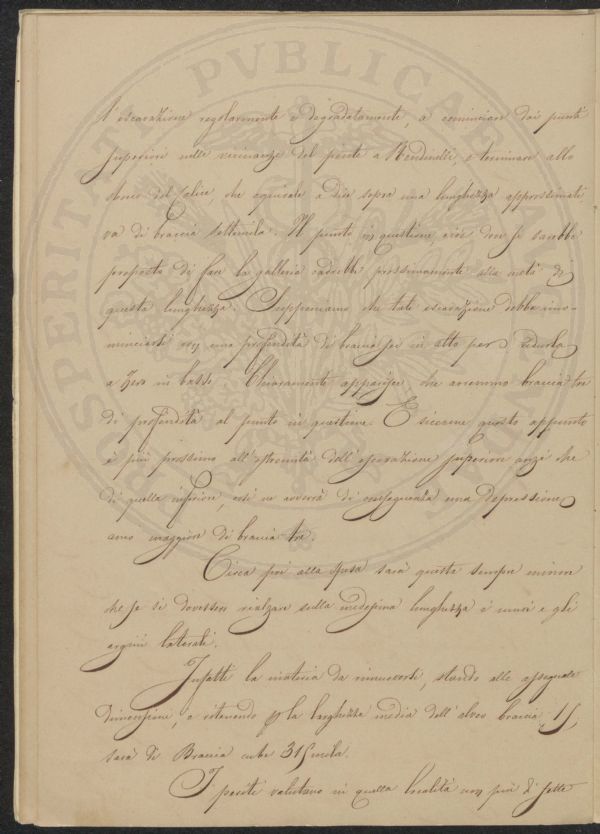 l'escavazione regolarmente e degradatamente, a cominciare dai punti
superiori nelle vicinanze del ponte a Mendinelli, e terminare allo
sbocco del Calice, che equivale a dire sopra una lunghezza approssimati
va di braccia settemila. Il punto in questione, cioè dove si sarebbe
proposto di fare la galleria cadrebbe prossimamente alla metà di
questa lunghezza. Supponiamo che tale escavazione debba inco-
minciarsi con una profondità di braccia sei in alto per ridurla
a Zero in basso. Chiaramente apparisce che avremmo braccia tre
di profondità al punto in questione. E siccome questo appunto
è più prossimo all'estremità dell'escavazione superiore anzi che
di quella inferiore, così ne avverrà di conseguenza una depressione
anco maggiore di braccia tre.
Circa poi alla spesa sarà questa sempre minore
che se si dovessero rialzare sulla medesima lunghezza i muri e gli
argini laterali.
Infatti la materia da rimuoversi, stando alle assegnate
dimensioni, e ritenendo la larghezza media dell'alveo braccia 15
sarà di Braccia cube 315 mila.
I periti valutano in quella località non più di sette
PROSPERITATI PVBLICAE